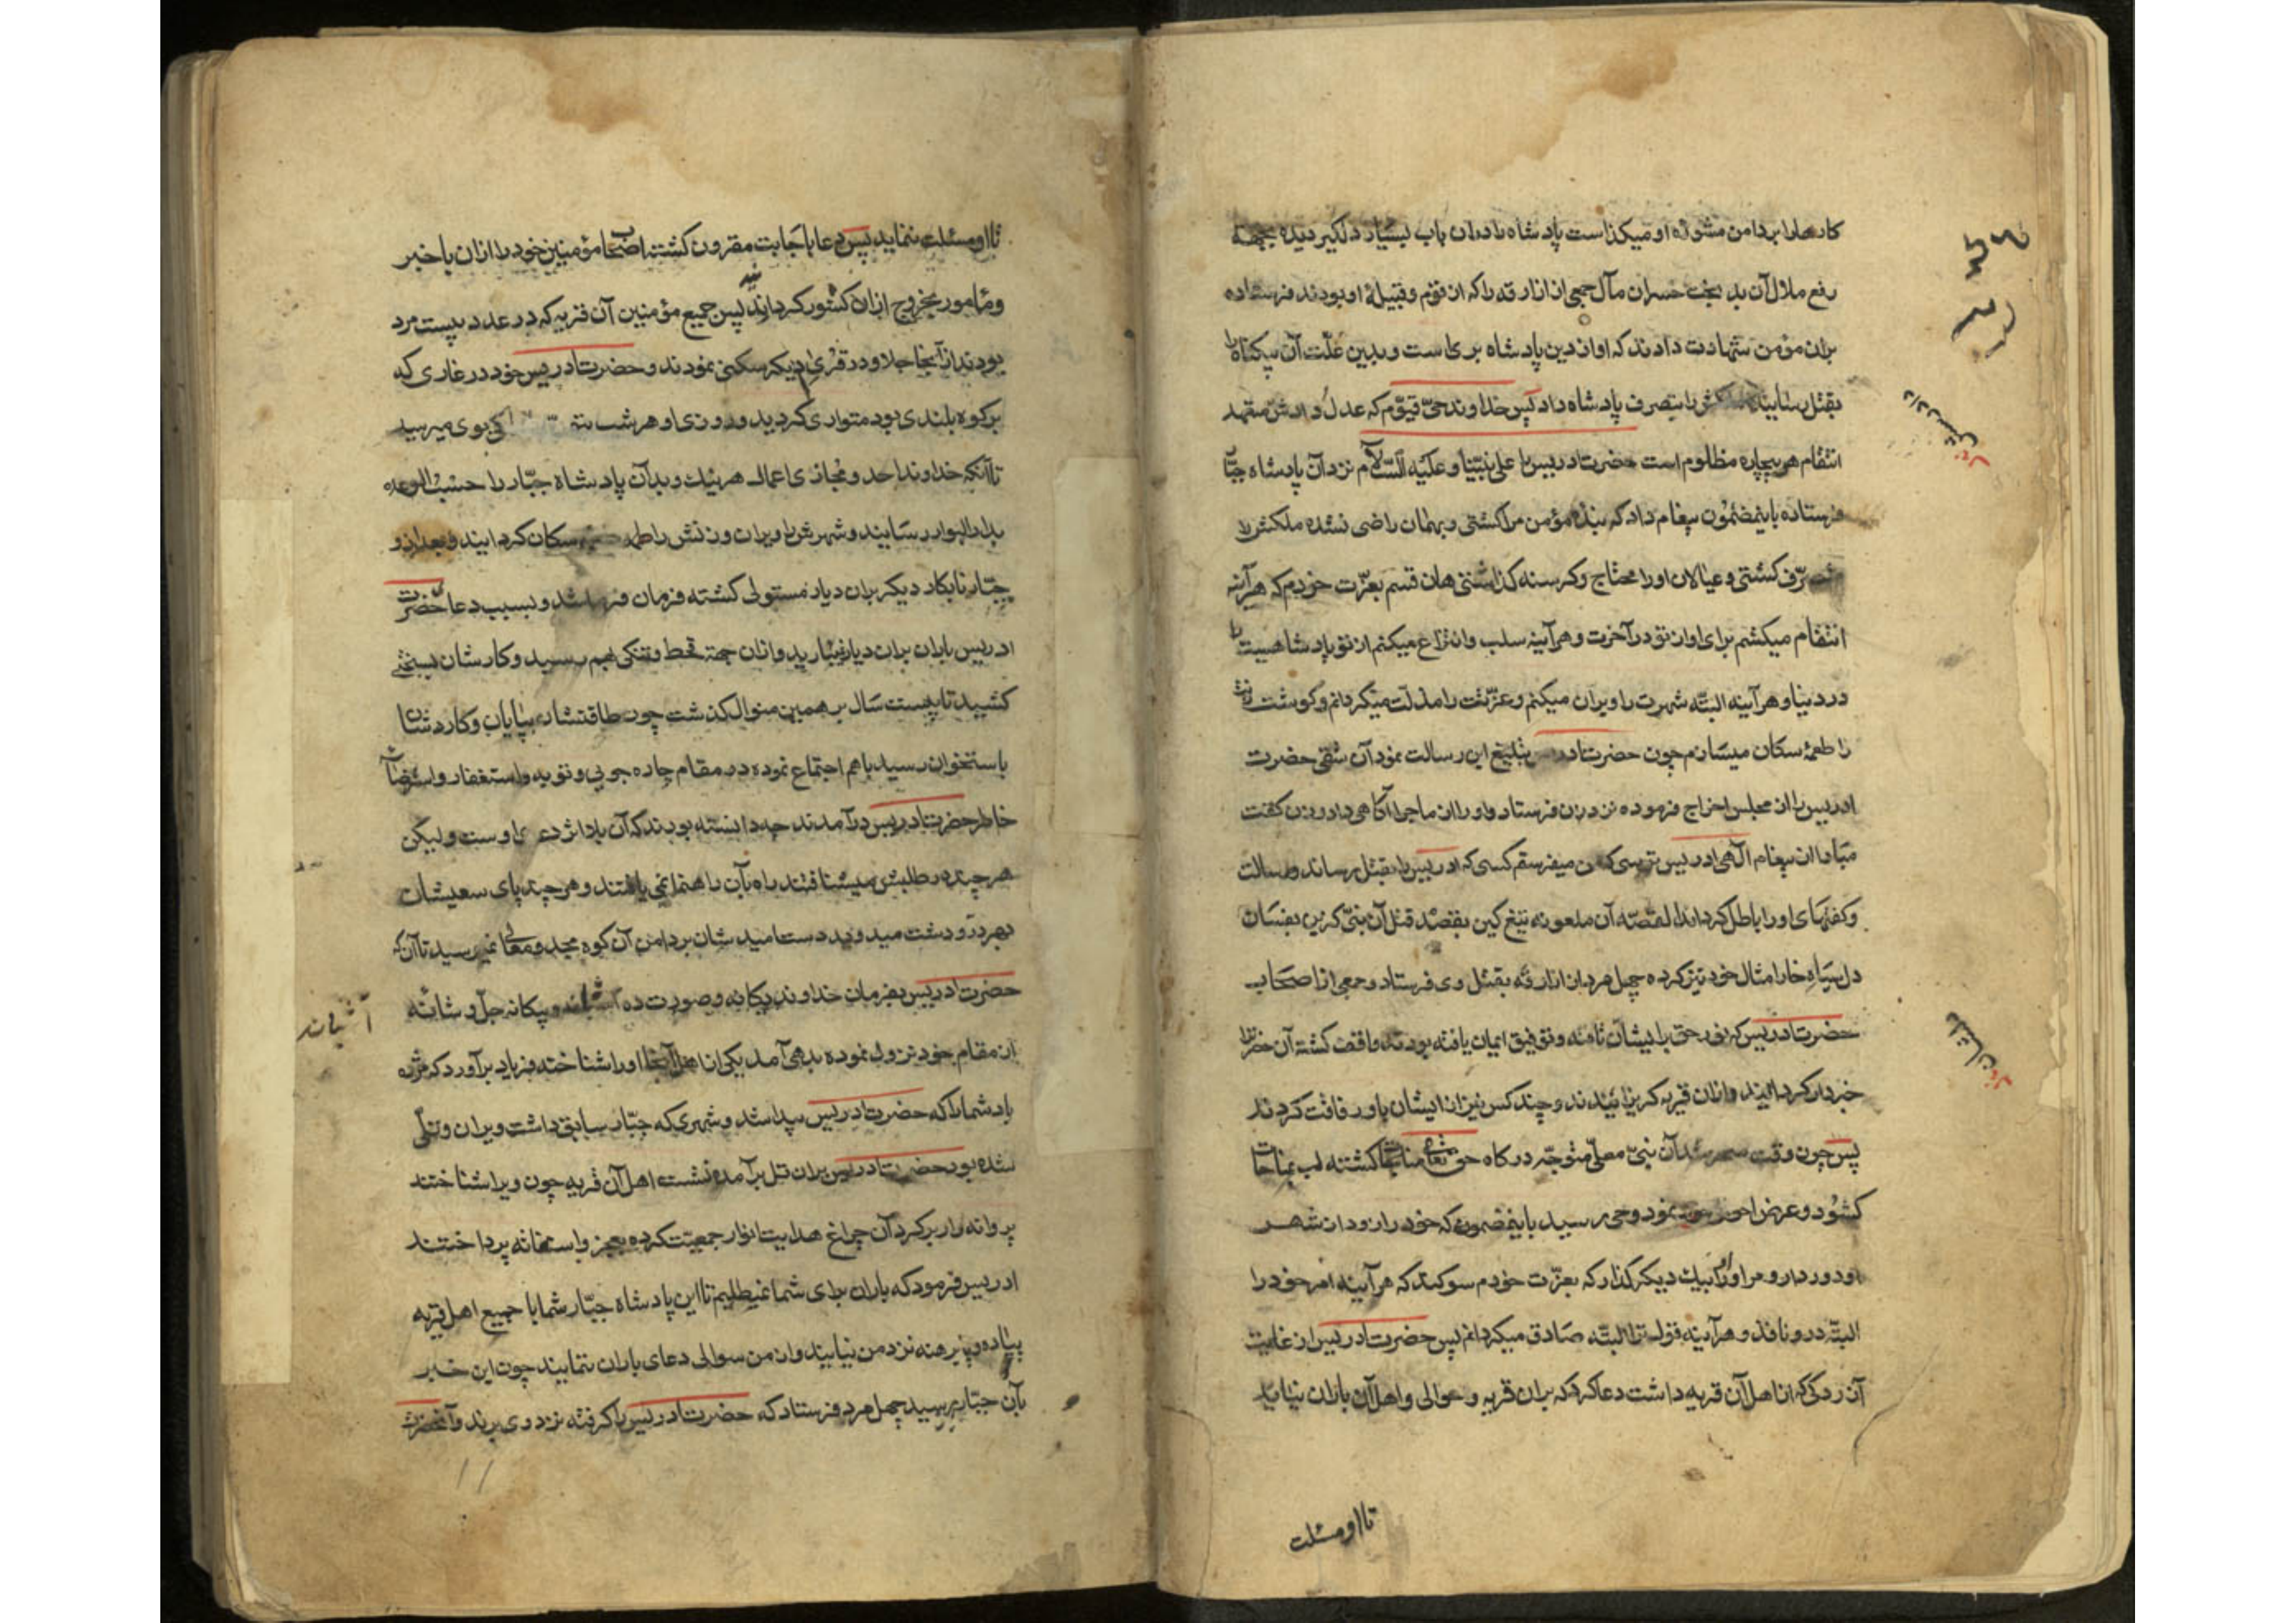 کارها را بر دامن مشورهٔ او میکذاست پادشاه را دران باب بسیار دلگیر دیده بجهته
رفع ملال آن بد بخت خسران مآل جمعی از ازارقه را که از قوم و قبیلهٔ او بودند فرستاده
بران مؤمن شهادت دادند که او از دین پادشاه بری است و بدین علّت آن بیکناه را
بقتل رسانیده ملکش را بتصرف پادشاه داد پس خداوند حیّ قیّوم که عدل و دادش متعهد
انتقام هر بیچاره مظلوم است حضرت ادریس را علی نبیّنا و علیه السّلام نزد آن پادشاه جبّار
فرستاده باینمضمون پیغام داد که بندهٔ مؤمن مرا کشتی و بهمان راضی نشده ملکش را
متصرّف کشتی و عیالان او را محتاج و کرسنه کذاشتی هان قسم بعزّت خودم که هرآینه
انتقام میکشم برای او از تو در آخرت و هرآینه سلب و انتزاع میکنم از تو پادشاهیت را
در دنیا و هرآینه البتّه شهرت را ویران میکنم و عزّتت را مذلّت میکردانم و کوشت زنت
را طعمهٔ سکان میسازم چون حضرت ادریس تبلیغ این رسالت نمود آن شقی حضرت
ادریس را از مجلس اخراج فرموده نزد زن فرستاد و او را از ماجرا آکاهی داد و زن کفت
مبادا از پیغام الٓهی ادریس ترسی که من میفرستم کسی که ادریس را بقتل رساند و رسالت
و کفتهای او را باطل کرداند القصّه آن ملعونه تیغ کین بقصد قتل آن نبیّ کزین بفسان
دل سیاه خارا مثال خود تیز کرده چهل مرد از ازارقه بقتل وی فرستاد و جمعی از اصحاب
حضرت ادریس که نور حق بایشان تافته و توفیق ایمان یافته بودند واقف کشته آن حضرترا
خبردار کردانیدند و از ان قریه کریزانیدند و چند کس نیز از ایشان باو رفاقت کردند
پس چون وقت سحر شد آن نبیّ معلّی متوجّه درکاه حق تعالی کشته لب بمناجات
کشود و عرض احوال خود نمود وحی رسید باینمضمون که خود را از ودان شهر
او دور دار و مرا و او را بیک دیکر کذار که بعزّت خودم سوکند که هرآینه امر خود را
البتّه در و نافذ و هرآینه قول ترا البتّه صادق میکردانم پس حضرت ادریس از غایت
آزردکی که از اهل آن قریه داشت دعا کرد که بران قریه و حوالی و اهل آن باران نیاید
تا او مسئلت
تا او مسئلت نماید پس دعا با جابت مقرون کشته اصحاب مؤمنین خود را ازان باخبر
و مأمور بخروج ازان کشور کردانید پس جمیع مؤمنین آن قریه که در عدد بیست مرد
بودند از آنجا جلا و در قرای دیکر سکنی نمودند و حضرت ادریس خود در غاری که
بر کوه بلندی بود متواری کردید و روزی او هر شب بوی میرسید
تا آنکه خداوند احد و مجازی اعمال هر نیک و بد آن پادشاه جبّار را حسب الوعده
بدار البوار رسانید و شهرش را ویران و زنش را طعمه سکان کردانید و بعد از و
جبّار نابکار دیکر بران دیار مستولی کشته فرمان فرما شد و بسبب دعا حضرت
ادریس باران بران دیار نبارید و ازان جهته قحط و تنکی بهم رسید و کارشان بسختی
کشید تا بیست سال بر همین منوال کذشت چون طاقتشان بپایان و کاردشان
باستخوان رسید باهم اجتماع نموده در مقام چاره جوئی و توبه و استغفار و استرضای
خاطر حضرت ادریس درآمدند چه دانسته بودند که آن بلا اثر دعای اوست ولیکن
هر چند در طلبش میشتافتند راه بآن راهنما نمی یافتند و هر چند پای سعیشان
بهر در و دشت میدوید دست امیدشان بر دامن آن کوه مجد و معالی نمیرسید تا آن که
حضرت ادریس بفرمان خداوند یکانه و صورت ده آشیانه و بیکانه جلّ و شانه
آشیانه
از مقام خود نزول نموده بدهی آمد یکی از اهل آنجا او را شناخته فریاد برآورد که مژده
باد شما را که حضرت ادریس پیدا شد و شهری که جبّار سابق داشت ویران و تلّی
شده بود حضرت ادریس بران تل برآمده نشست اهل آن قریه چون ویرا شناختند
پروانه وار بر کرد آن چراغ هدایت انوار جمعیّت کرده بعجز و استغاثه پرداختند
ادریس فرمود که باران برای شما نمیطلبم تا این پادشاه جبّار شما با جمیع اهل قریه
پیاده و پا برهنه نزد من نیایند و از من سوالی دعای باران ننمایند چون این خبر
بآن جبّار رسید چهل مرد فرستاد که حضرت ادریس را کرفته نزد وی برند و آنحضرت
۱۱